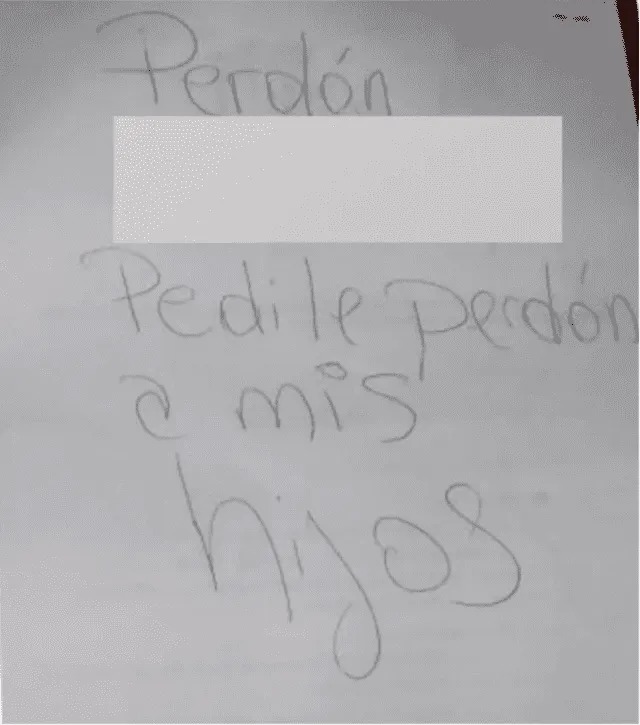 Perdón
Pedile perdón
a mis
hijos